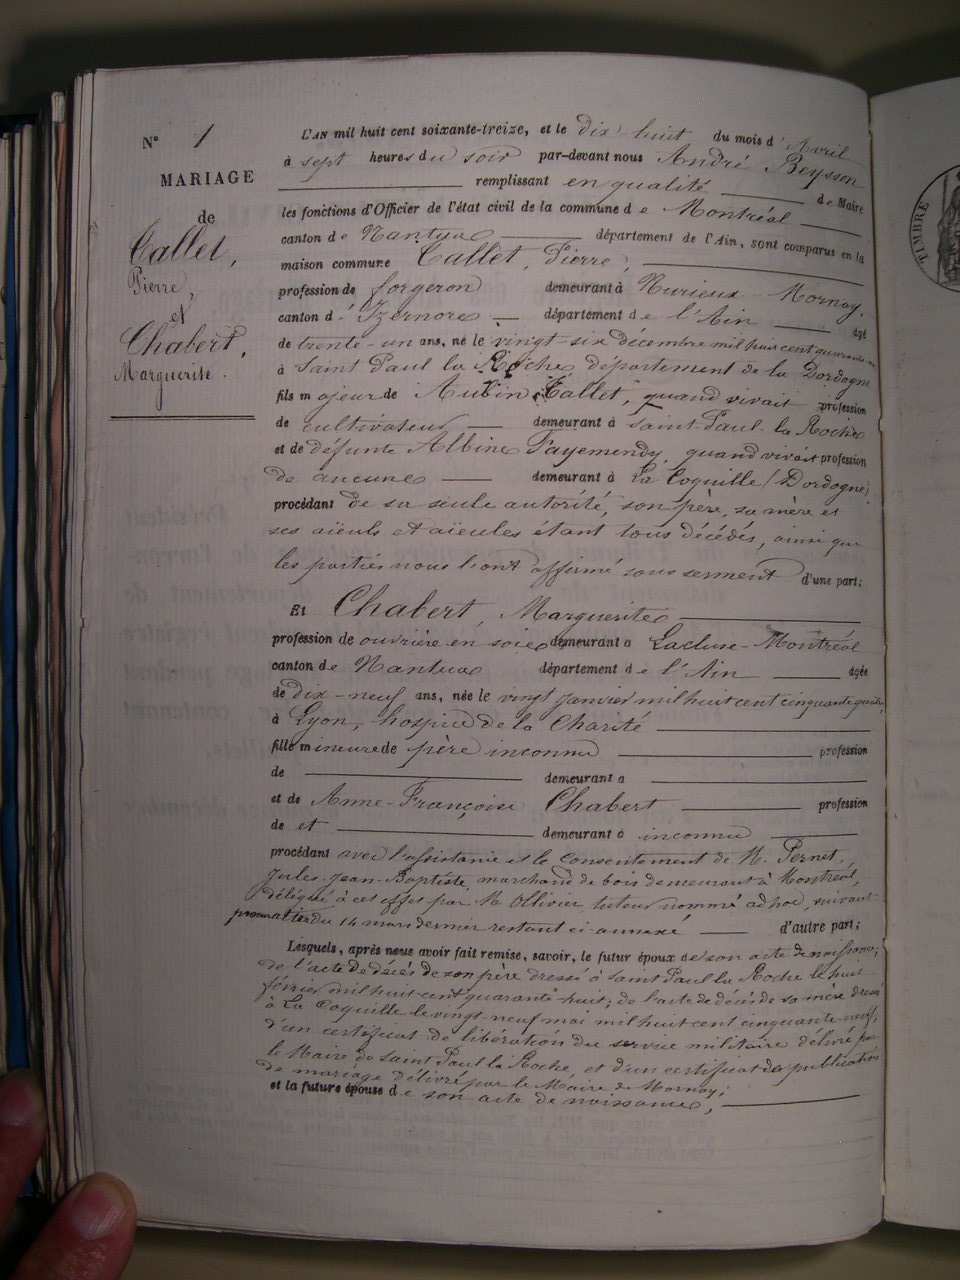 N° 1
MARIAGE
de
Callet,
Pierre,
et
Chabert,
Marguerite.
L'AN mil huit cent soixante-treize, et le dix huit du mois d'Avril
à sept heures du soir par-devant nous André Beysson
remplissant en qualité de Maire
les fonctions d'Officier de l'état civil de la commune de Montréal
canton de Nantua département de l'Ain, sont comparus en la
maison commune Callet, Pierre,
profession de forgeron demeurant à Nurieux Mornay,
canton d'Izernore département de l'Ain âgé
de trente-un ans, né le vingt-six décembre mil huit cent quarante-un
à Saint Paul la Roche département de la Dordogne
fils majeur de Aubin Callet, quand vivait profession
de cultivateur demeurant à Saint-Paul-la Roche
et de défunte Albine Fayemendy, quand vivait profession
de aucune demeurant à La Coquille (Dordogne)
procédant de sa seule autorité, son père, sa mère et
ses aïeuls et aïeules étant tous décédés, ainsi que
les parties nous l'ont affirmé sous serment d'une part;
Et Chabert, Marguerite
profession de ouvrière en soie demeurant à Lacluse-Montréal
canton de Nantua département de l'Ain âgée
de dix-neuf ans, née le vingt janvier mil huit cent cinquante quatre,
à Lyon, hospice de la Charité
fille mineure de père inconnu profession
de demeurant à
et de Anne-Françoise Chabert profession
de et demeurant à inconnu
procédant avec l'assistance et le consentement de M. Pernet,
Jules-Jean-Baptiste, marchand de bois demeurant à Montréal,
délégué à cet effet par M. Ollivier, tuteur nommé ad hoc, suivant
du 14 mars dernier restant ci-annexé d'autre part;
Lesquels, après nous avoir fait remise, savoir, le futur époux de son acte de naissance;
de l'acte de décès de son père dressé à Saint Paul la Roche le huit
février mil huit cent quarante-huit; de l'acte de décès de sa mère dressé
à La Coquille le vingt-neuf mai mil huit cent cinquante-neuf;
d'un certificat de libération du service militaire délivré par
le Maire de Saint Paul la Roche, et d'un certificat de publication
de mariage délivré par le Maire de Mornay;
et la future épouse de son acte de naissance,
TIMBRE